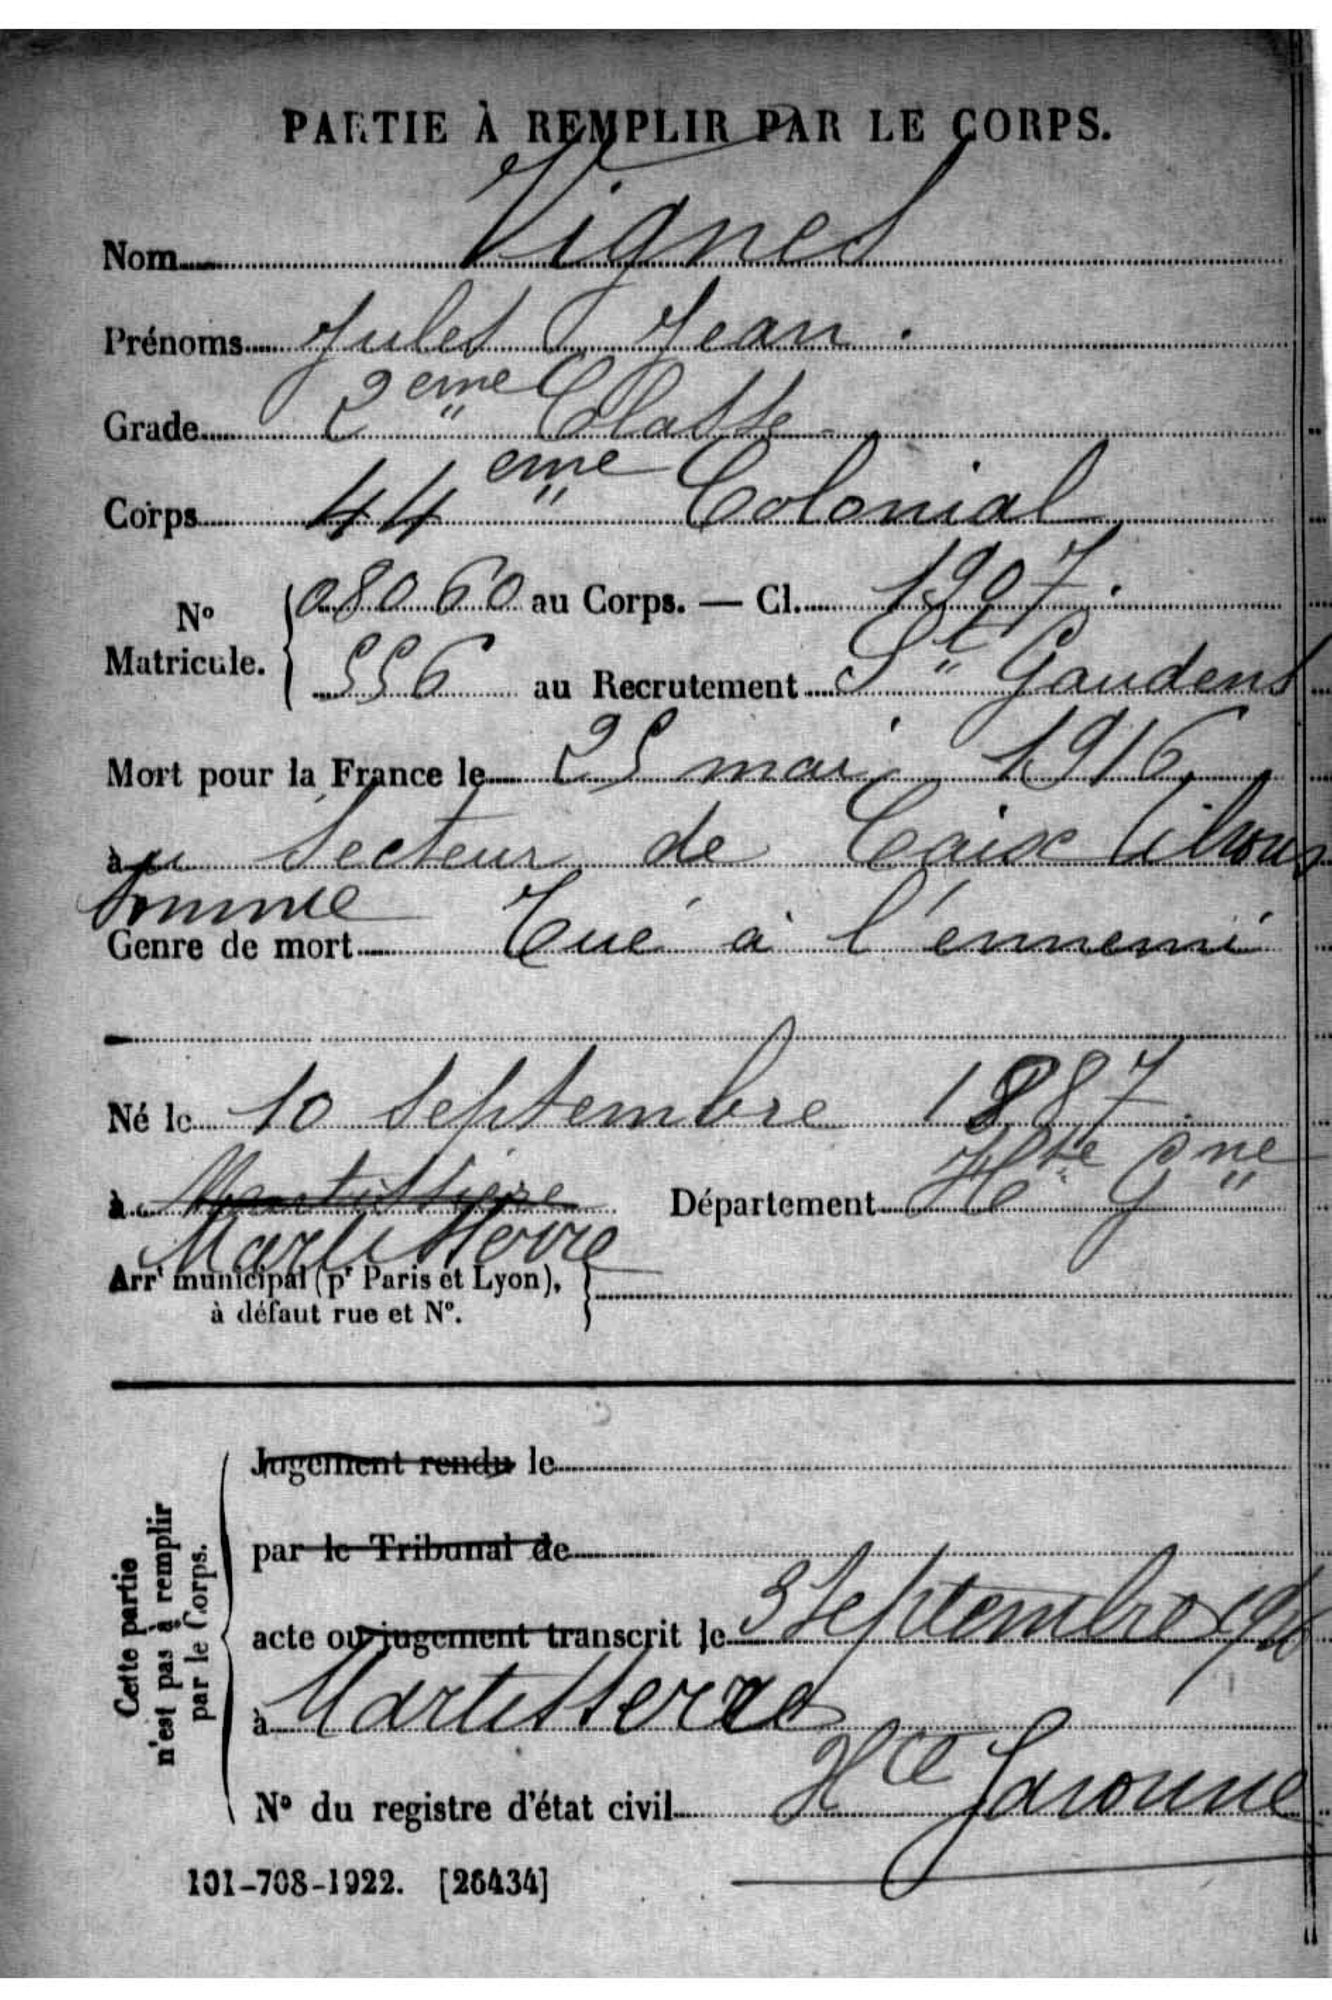 PARTIE À REMPLIR PAR LE CORPS.
Nom Vignes
Prénoms Jules Jean.
Grade 2eme Classe
Corps 44eme Colonial
N° Matricule. 08060 au Corps. — Cl. 1907.
556 au Recrutement St Gaudens
Mort pour la France le 25 mai 1916
au Secteur de Caix
Somme
Genre de mort Tué à l'ennemi
Né le 10 Septembre 1887.
à Martisserre Département Hte Gne
Martisserre
Arrt municipal (pr Paris et Lyon),
à défaut rue et N°.
Cette partie
n'est pas à remplir
par le Corps.
Jugement rendu le
par le Tribunal de
acte ou jugement transcrit le 3 Septembre
à Martisserre
N° du registre d'état civil Hte Garonne
101-708-1922. [26434]